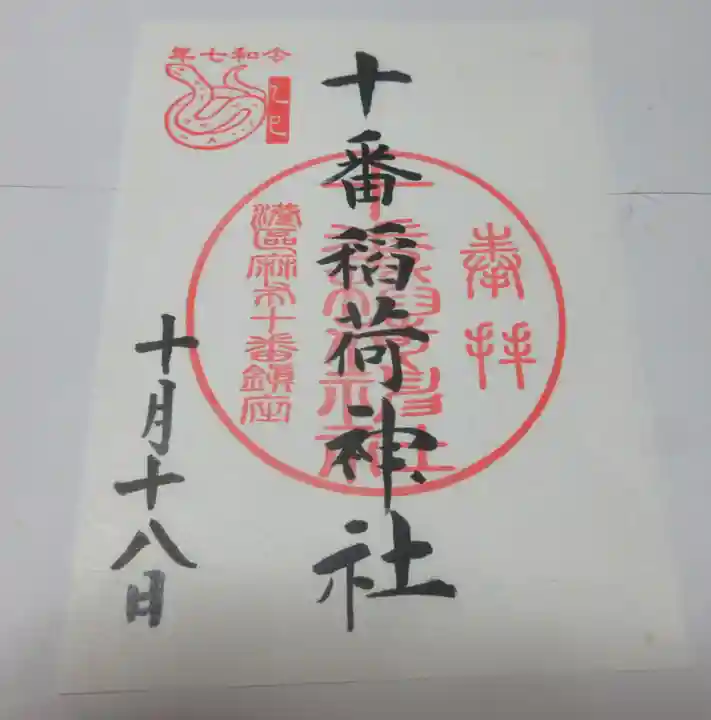 奉拝
十番稲荷神社
十番稲荷神社
港區麻布十番鎮座
令和七年
乙巳
十月十八日